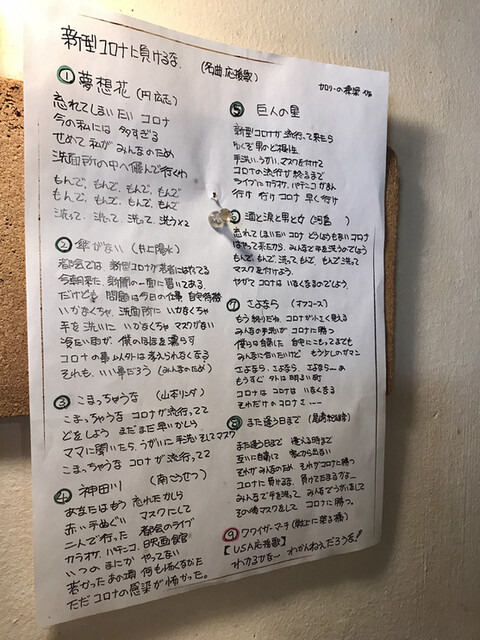 新型コロナに負けるな。
(名曲応援歌)
カロリーの標準 作
① 夢想花 (円広志)
忘れてしまいたい コロナ
今の私には 多すぎる
せめて 私が みんなのため
洗面所の中へ 傷んで行くわ
もんで、もんで、もんで、もんで
もんで、もんで、もんで、もんで
洗って、洗って、洗って、洗う×2
② 傘がない (井上陽水)
都会では、新型コロナが若者にはやってる
今朝来た、新聞の一面に書いてある、
だけども 問題は今日の仕事、自宅待機
いかなくちゃ、洗面所に いかなくちゃ
手を洗いに いかなくちゃ マスクがない
冷たい雨が、僕のほほを濡らす
コロナの事以外は考えられなくなる
それも、いい事だろう (みんなのため)
③ こまっちゃうな (山本リンダ)
こまっちゃうな コロナが流行ってて
どをしよう まだまだ早いかしら
ママに聞いたら、うがいに手洗いそしてマスク
こまっちゃうな コロナが流行ってて
④ 神田川 (南こうせつ)
あなたはもう 忘れたかしら
赤い手ぬぐい マスクにして
二人で行った 都会のライブ
カラオケ、パチンコ、映画館
いつのまにか やってない
若かったあの頃 何も怖くなかった
ただコロナの感染が怖かった。
⑤ 巨人の星
新型コロナが 流行って来たら
ゆくぞ 男のど根性
手洗い、うがい、マスクを付けて
コロナの流行が 終るまで
ライブにカラオケ、パチンコ がまん
行け 行け コロナ 早く行け
⑥ 酒と涙と男と女 (河島)
忘れてしまいたい コロナ どうしようもない コロナ
はやって来たから、みんなで手を洗うのでしょう
もんで、もんで、洗って、もんで、もんで 洗って
マスクを付けよう、
やがて コロナは いなくなるのでしょう。
⑦ さよなら (オフコース)
もう 終りだね、コロナが小さく見える
みんなの手洗いが コロナに勝つ
僕らは自粛した 自宅にこもってまでも
みんなに会いたいけど もう少しのガマン
さよなら、さよなら、さよなら〜
もうすぐ 外は明るい町
コロナは コロナは いなくなる
それだけのコロナさ ---
⑧ また逢う日まで (尾崎紀世彦)
また逢う日まで 逢える時まで
互いに自粛して 家から出ない
それがみんなのため、それがコロナに勝つ
コロナに負けるな、負けてたまるか〜
みんなで手を洗って みんなでうがいをして
その後マスクをして コロナに勝つ。
⑨ ワイハイザーマーチ
【USA応援歌】
わかるかな〜 わかんねえだろうな!